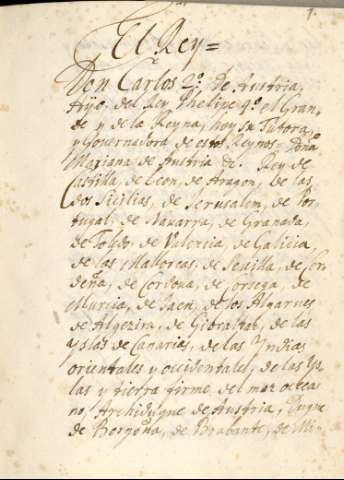 1.
El Rey=
Don Carlos 2º. de Austria,
Hijo del Rey Phelipe 4º. el Gran,
de y de la Reyna, hoy su Tutora
y Governadora de estos Reynos= Doña
Mariana de Austria &. Rey de
Castilla, de Leon, de Aragon, de las
dos Sicilias, de Jerusalem, de Por
tugal, de Navarra, de Granada,
de Toledo, de Valencia, de Galicia,
de las Mallorcas, de Sevilla, de Cer
deña, de Cordova, de Corsega, de
Murcia, de Jaen, de los Algarves
de Algezira, de Gibraltar, de las
Yslas de Canarias, de las Yndias
orientales y occidentales, de las Ys,
las y tierra firme del mar occea
no, Archiduque de Austria, Duque
de Borgoña, de Brabante, de Mi-